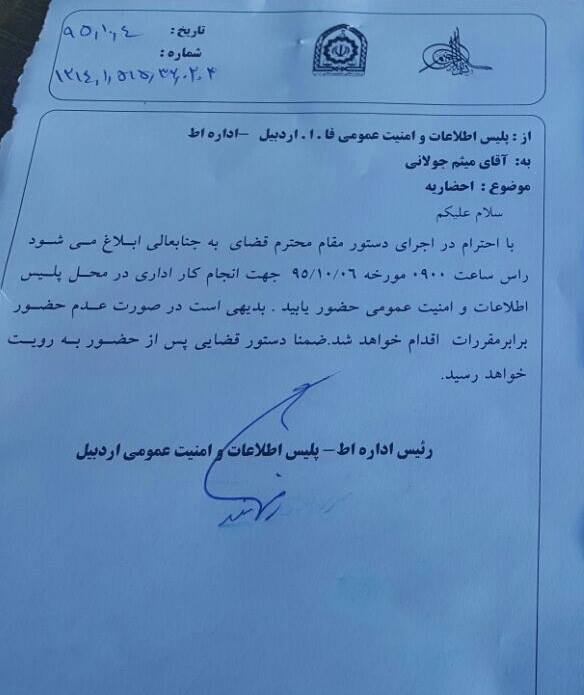 تاریخ: ۹۵,۱۰,۴
شماره:
از: پلیس اطلاعات و امنیت عمومی فا.ا.اردبیل -اداره اط
به: آقای میثم جولانی
موضوع: احضاریه
سلام علیکم
با احترام در اجرای دستور مقام محترم قضای به جنابعالی ابلاغ می شود
راس ساعت ۰۹۰۰ مورخه ۹۵/۱۰/۰۶ جهت انجام کار اداری در محل پلیس
اطلاعات و امنیت عمومی حضور یابید . بدیهی است در صورت عدم حضور
برابرمقررات اقدام خواهد شد.ضمنا دستور قضایی پس از حضور به رویت
خواهد رسید.
رئیس اداره اط- پلیس اطلاعات و امنیت عمومی اردبیل